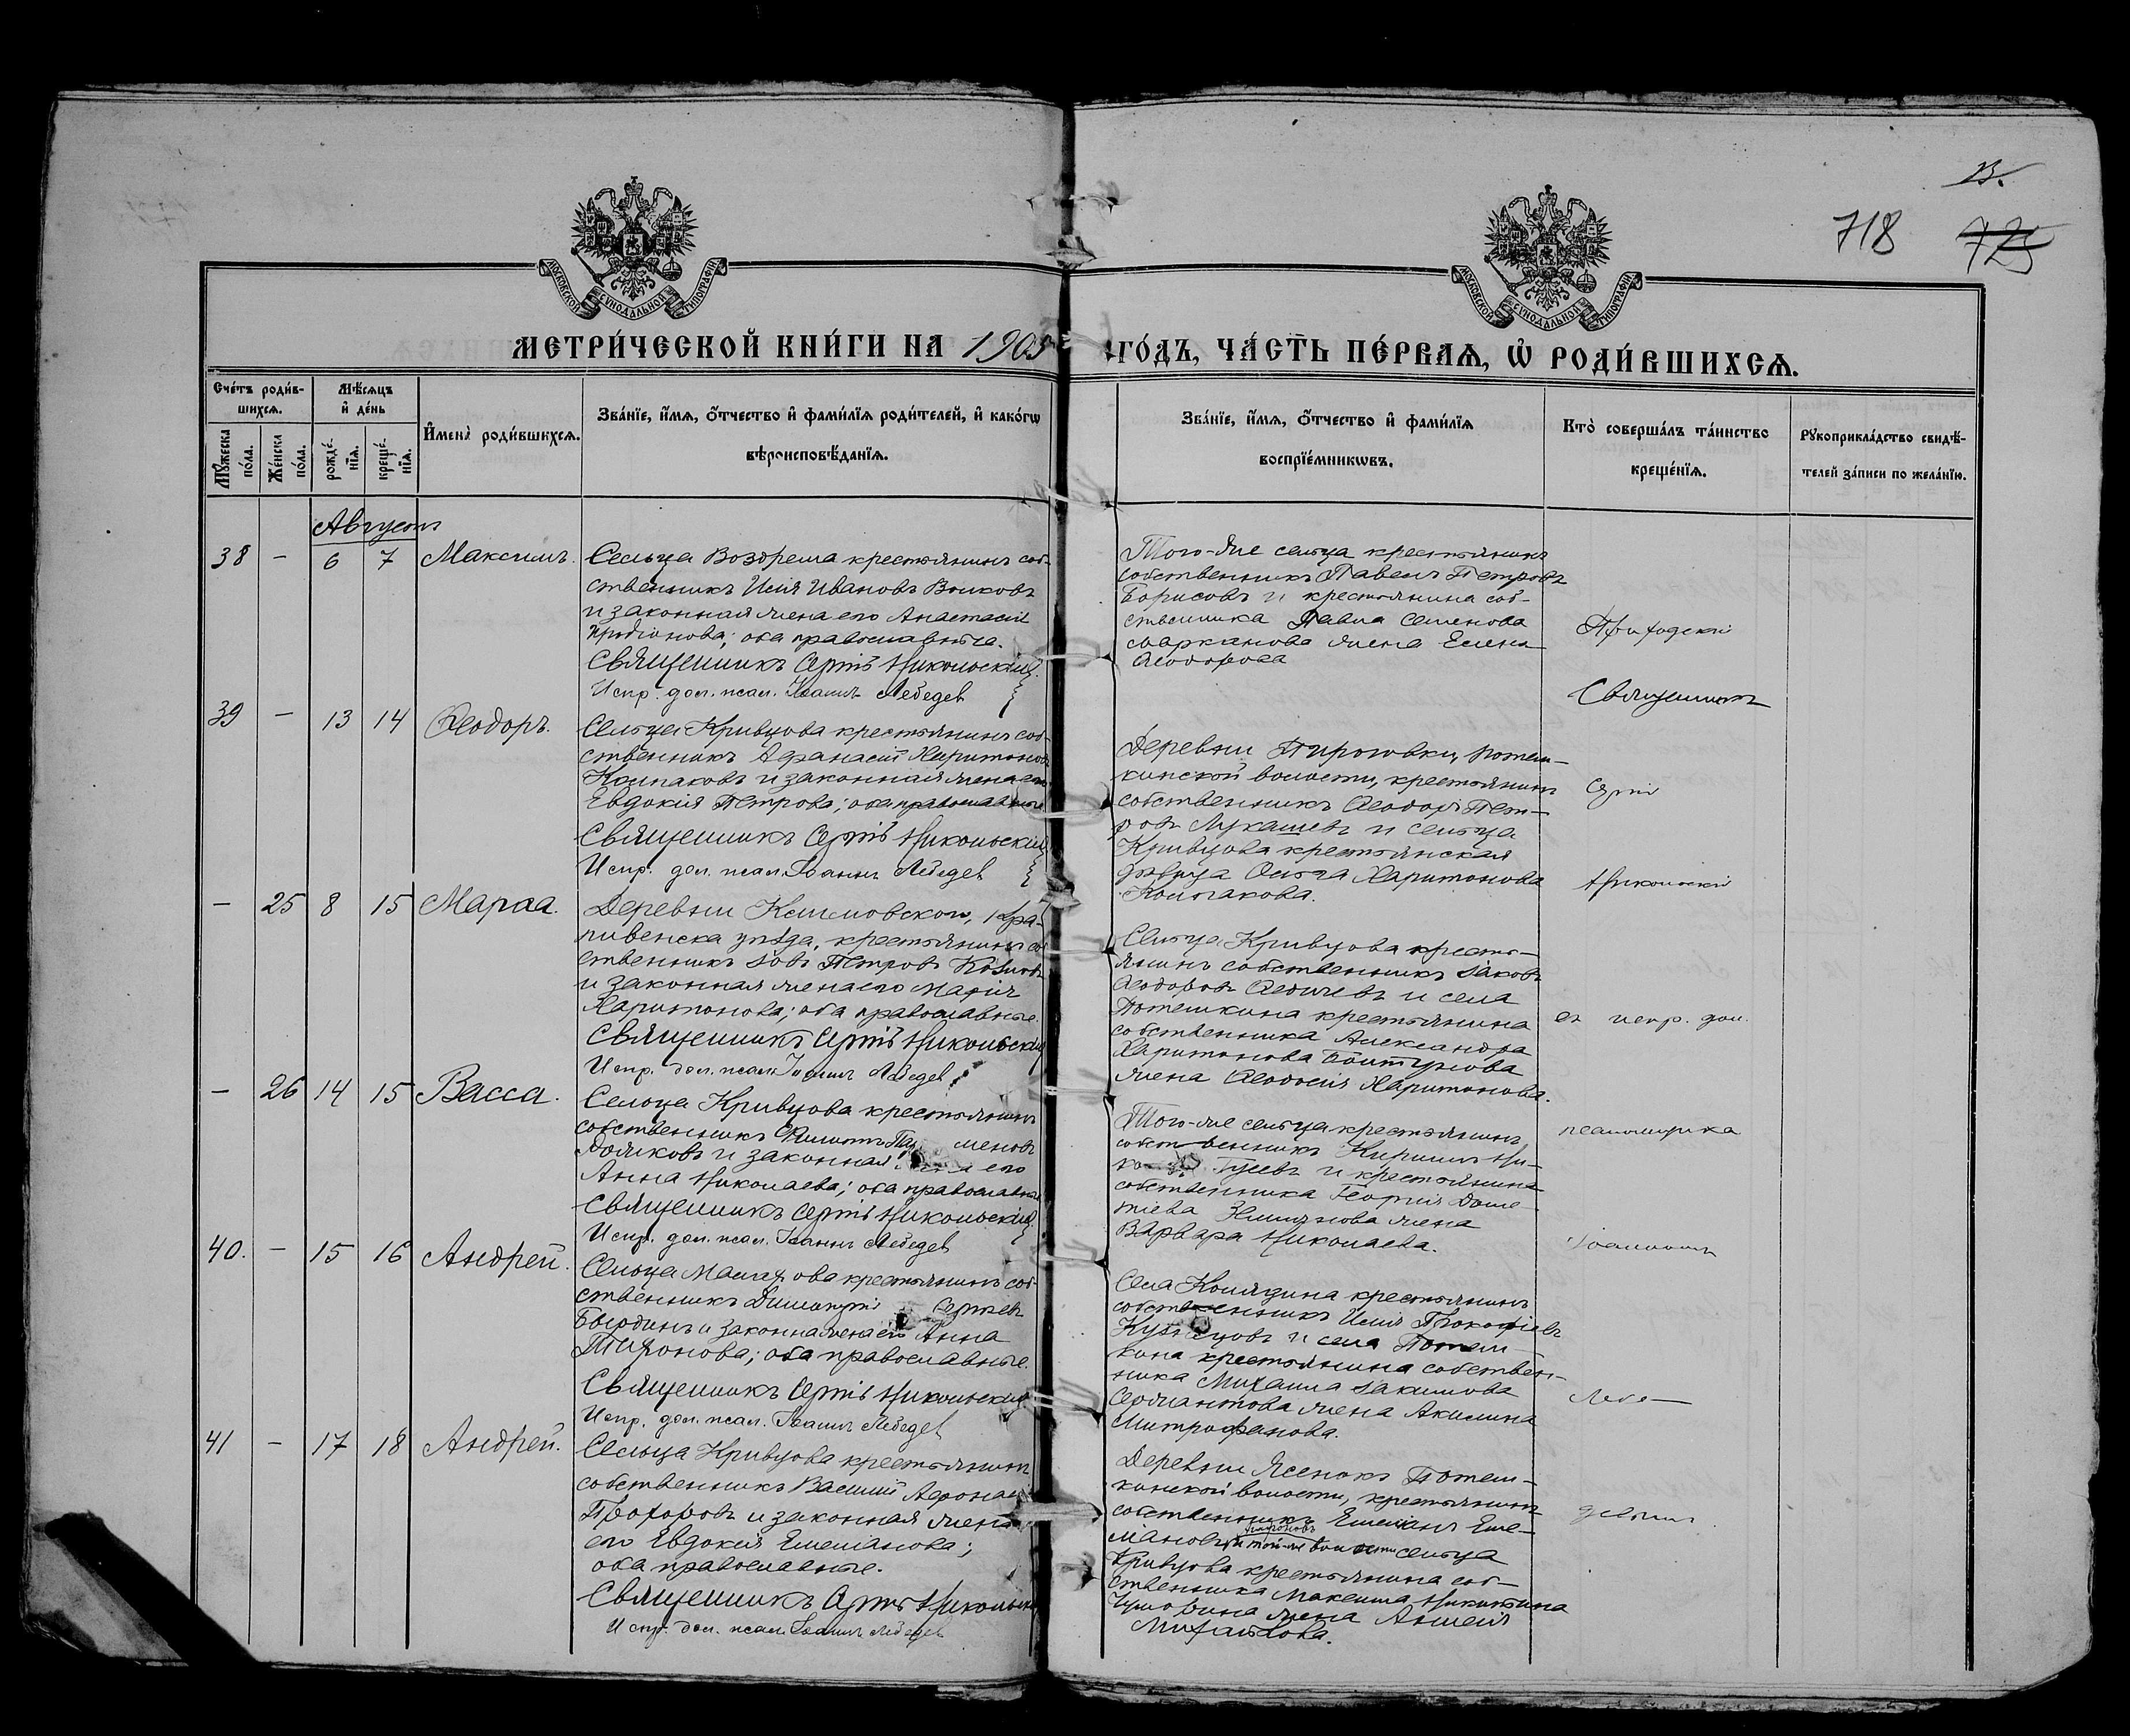 В.
718 725
МОСКОВСКОЙ СѴНОДАЛЬНОЙ ТИПОГРАФІИ
МОСКОВСКОЙ СѴНОДАЛЬНОЙ ТИПОГРАФІИ
МЕТРИ́ЧЕСКОЙ КНИ́ГИ НА 1905 ГО́ДЪ, ЧА́СТЬ ПЕ́РВАѦ, Ѡ҆ РОДИ́ВШИХСѦ.
Сче́тъ роди́в-
шихсѧ.
Мꙋ́жеска по́ла.
Же́нска по́ла.
Мѣ́сѧцъ
и҆ де́нь
рожде́-
нїѧ.
креще́-
нїѧ.
И҆мена̀ роди́вшихсѧ.
Зва́нїе, и҆́мѧ, ѻ҆́тчество и҆ фами́лїѧ роди́телей, и҆ како́гѡ
вѣроисповѣ́данїѧ.
Зва́нїе, и҆́мѧ, ѻ҆́тчество и҆ фами́лїѧ
воспрїе́мникѡвъ.
Кто̀ соверша́лъ та́инство
креще́нїѧ.
Рꙋкоприкла́дство свидѣ́-
телей за́писи по жела́нїю.
Августъ
38 - 6 7 Максимъ.
Сельца Воздрема крестьянинъ соб-
ственникъ Илія Ивановъ Волковъ
и законная жена его Анастасія
Иродіонова; оба православные.
Священникъ Сергій Никольскій
Испр. дол. псал. Іоаннъ Лебедев
Того-же сельца крестьянинъ
собственникъ Павелъ Петровъ
Борисовъ и крестьянина соб-
ственника Павла Семенова
жена Елена
Ѳеодорова
39 - 13 14 Ѳеодоръ.
Сельца Кривцова крестьянинъ соб-
ственникъ Аѳанасій Харитонов
Колпаковъ и законная жена его
Евдокія Петрова; оба православные
Священникъ Сергій Никольскій
Испр. дол. псал. Іоаннъ Лебедев
Деревни Пироговки, Потем-
кинской волости, крестьянинъ
собственникъ Ѳеодоръ Пет-
ровъ Лукашевъ и сельца
Кривцова крестьянская
дѣвица Ольга Харитонова
Колпакова.
- 25 8 15 Марѳа.
Деревни Кра-
пивенска уѣзда, крестьянинъ соб
ственникъ Іовъ Петровъ Козловъ
и законная жена его Марія
Харитонова; оба православные.
Священникъ Сергій Никольскій
Испр. дол. псал. Іоаннъ Лебедев
Сельца Кривцова кресть-
янинъ собственникъ Іаковъ
Ѳеодоровъ и села
Потемкина крестьянина
собственника Александра
Харитонова
жена Ѳеодосія Харитонова.
- 26 14 15 Васса.
Сельца Кривцова крестьянинъ
собственникъ Филиппъ
и законная его
Анна Николаева; оба православные
Священникъ Сергій Никольскій
Испр. дол. псал. Іоаннъ Лебедев
Того-же сельца крестьянинъ
собственникъ Кириллъ Ни-
Гусевъ и крестьянина
собственника Георгія
жена
Варвара Николаева.
40. - 15 16 Андрей.
Сельца крестьянинъ соб-
ственникъ Димитрій Сергѣев
и законна жена его Анна
Тихонова; оба православные.
Священникъ Сергій Никольскій
Испр. дол. псал. Іоаннъ Лебедев
Села крестьянинъ
собственникъ Илія Прокофіевъ
Кузнецовъ и села Потем-
кина крестьянина собствен-
ника Михаила Іакимова
Сержантова жена Акилина
Митрофанова.
41 - 17 18 Андрей.
Сельца Кривцова крестьянинъ
собственникъ Василій
Прохоровъ и законная жена
его Евдокія Емеліанова;
оба православные.
Священникъ Сергій Никольскій
Испр. дол. псал. Іоаннъ Лебедев
Деревни Ясенокъ Потем-
кинской волости, крестьянинъ
собственникъ Емеліанъ Еме-
ліановъ и той-же волости сельца
Кривцова крестьянина соб-
ственника Максима Никитина
жена
Михайлова.
Приходскій
Священникъ
Сергій
Никольскій
съ испр. дол.
псаломщика
Іоанномъ
Лебе-
девымъ.